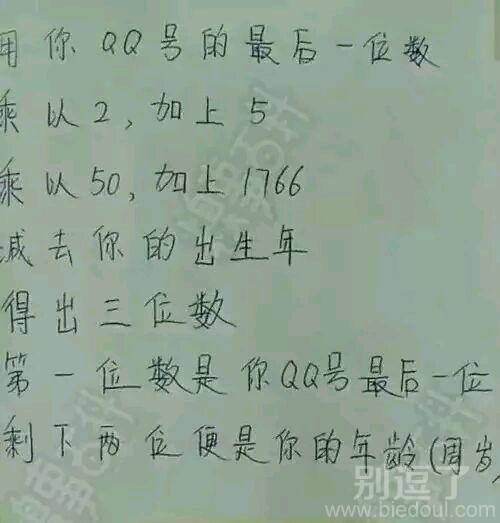 用你QQ号的最后一位数
乘以2,加上5
乘以50,加上1766
减去你的出生年
得出三位数
第一位数是你QQ号最后一位
剩下两位便是你的年龄(周岁
别逗了
www.biedoul.com